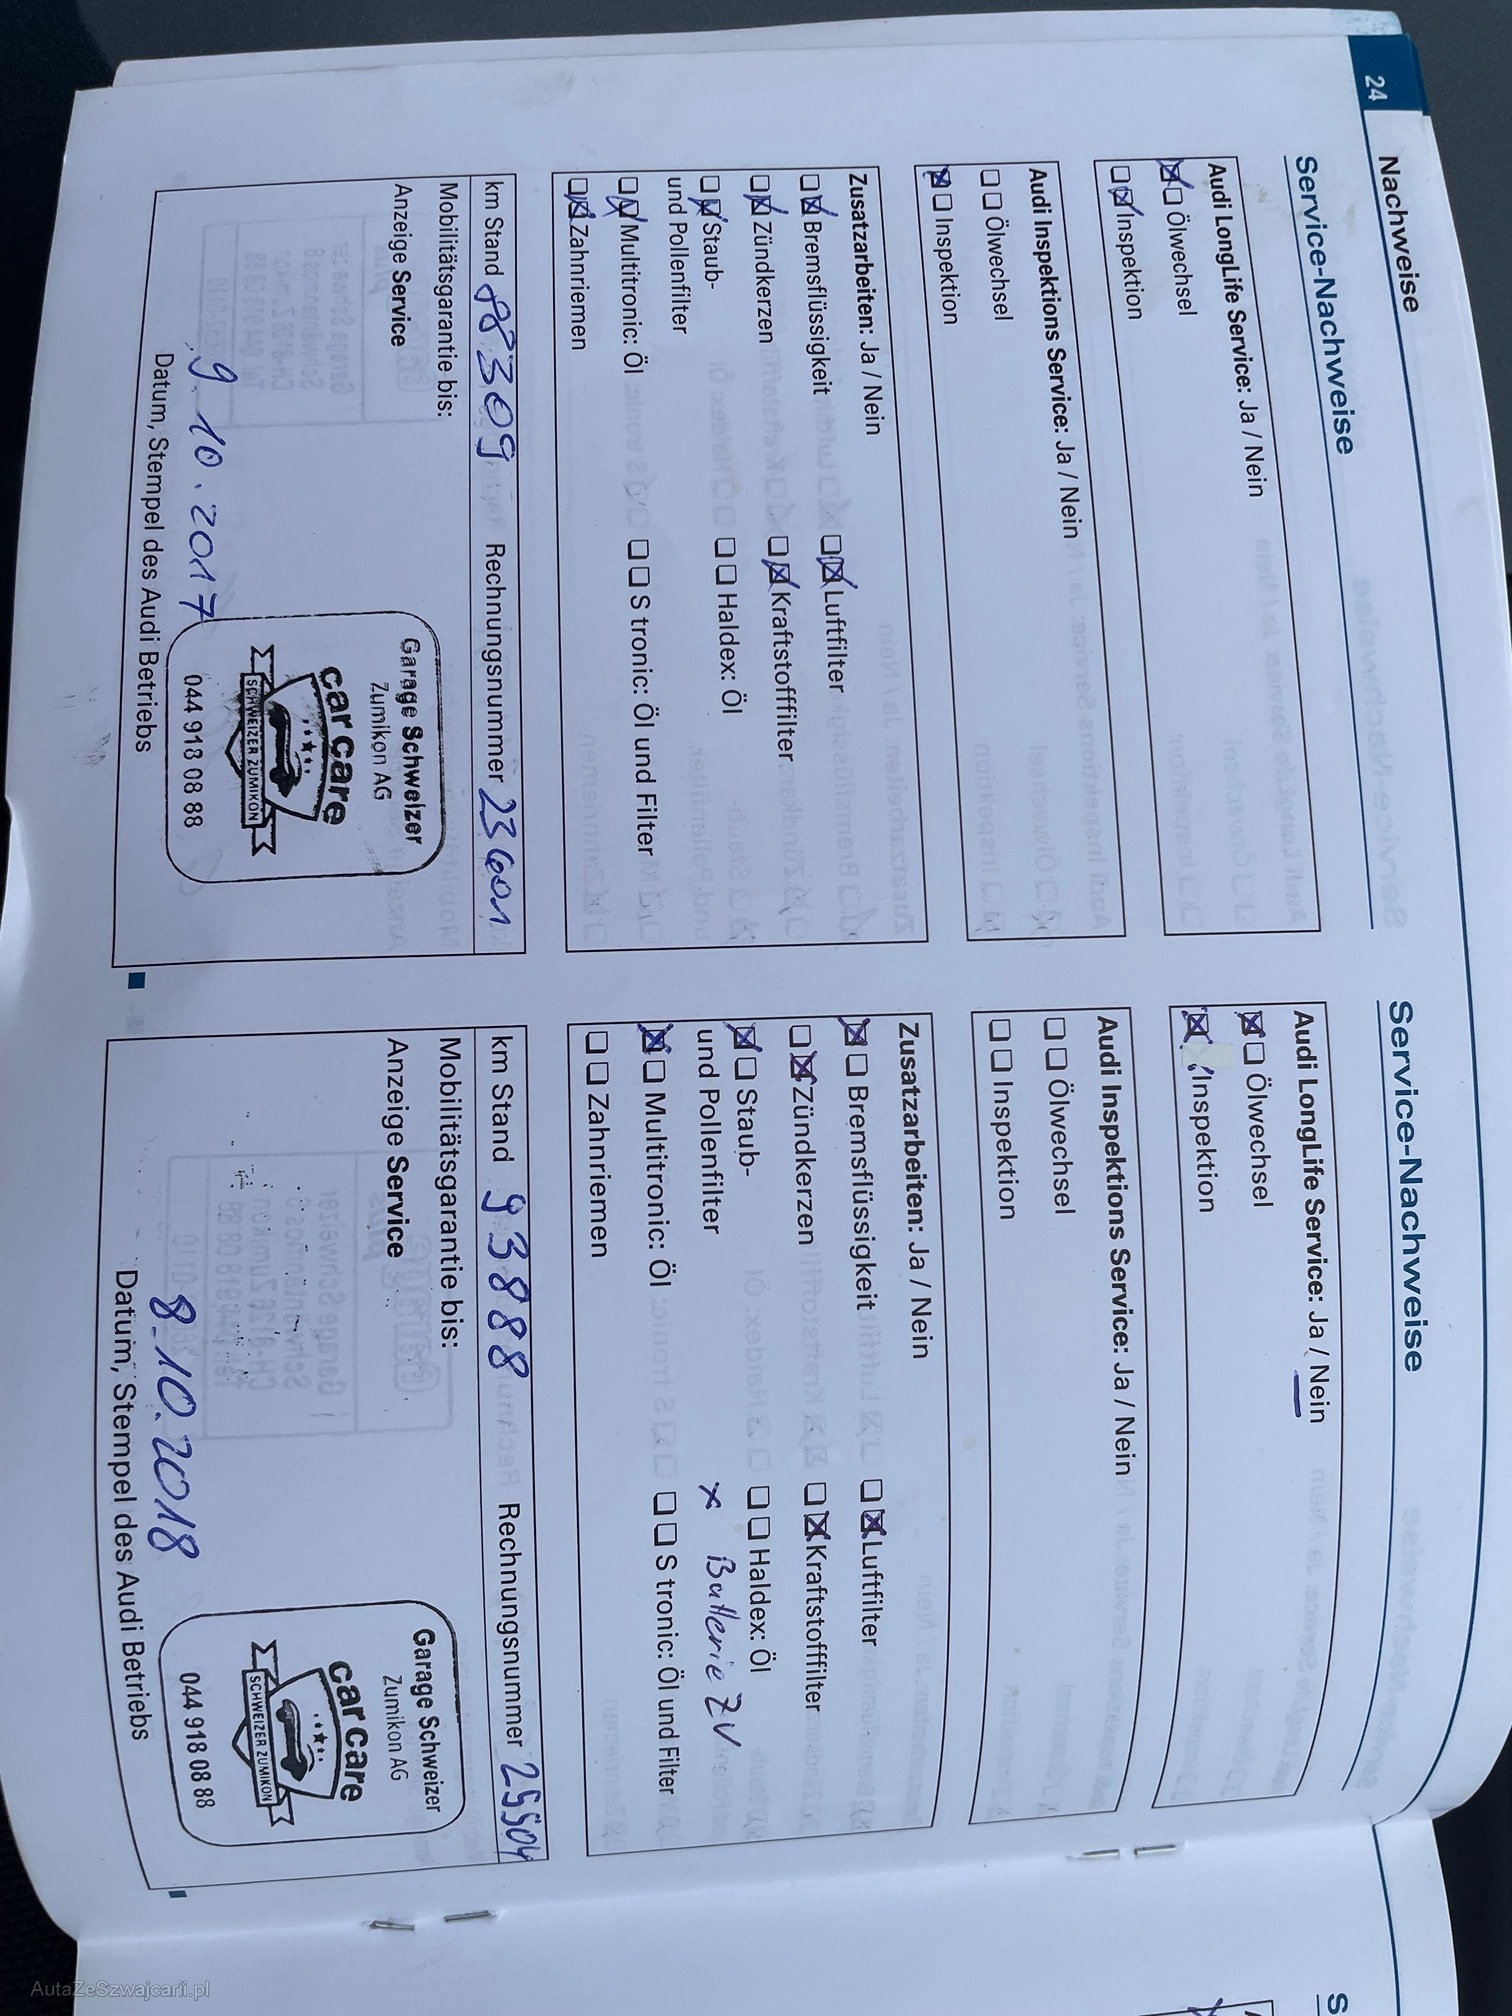 24 Nachweise
Service-Nachweise
Audi LongLife Service: Ja / Nein
Ölwechsel
Inspektion
Audi Inspektions Service: Ja / Nein
Ölwechsel
Inspektion
Zusatzarbeiten: Ja / Nein
Bremsflüssigkeit Luftfilter
Zündkerzen Kraftstofffilter
Staub- Haldex: Öl
und Pollenfilter
Multitronic: Öl S tronic: Öl und Filter
Zahnriemen
km Stand 88309 Rechnungsnummer 23601
Mobilitätsgarantie bis:
Anzeige Service
Garage Schweizer
Zumikon AG
car care
SCHWEIZER ZUMIKON
044 918 08 88
9.10.2017
Datum, Stempel des Audi Betriebs
Service-Nachweise
Audi LongLife Service: Ja / Nein
Ölwechsel
Inspektion
Audi Inspektions Service: Ja / Nein
Ölwechsel
Inspektion
Zusatzarbeiten: Ja / Nein
Bremsflüssigkeit Luftfilter
Zündkerzen Kraftstofffilter
Staub- Haldex: Öl
und Pollenfilter x Batterie ZV
Multitronic: Öl S tronic: Öl und Filter
Zahnriemen
km Stand 93888 Rechnungsnummer 25504
Mobilitätsgarantie bis:
Anzeige Service
Garage Schweizer
Zumikon AG
car care
SCHWEIZER ZUMIKON
044 918 08 88
8.10.2018
Datum, Stempel des Audi Betriebs
AutaZeSzwajcarii.pl